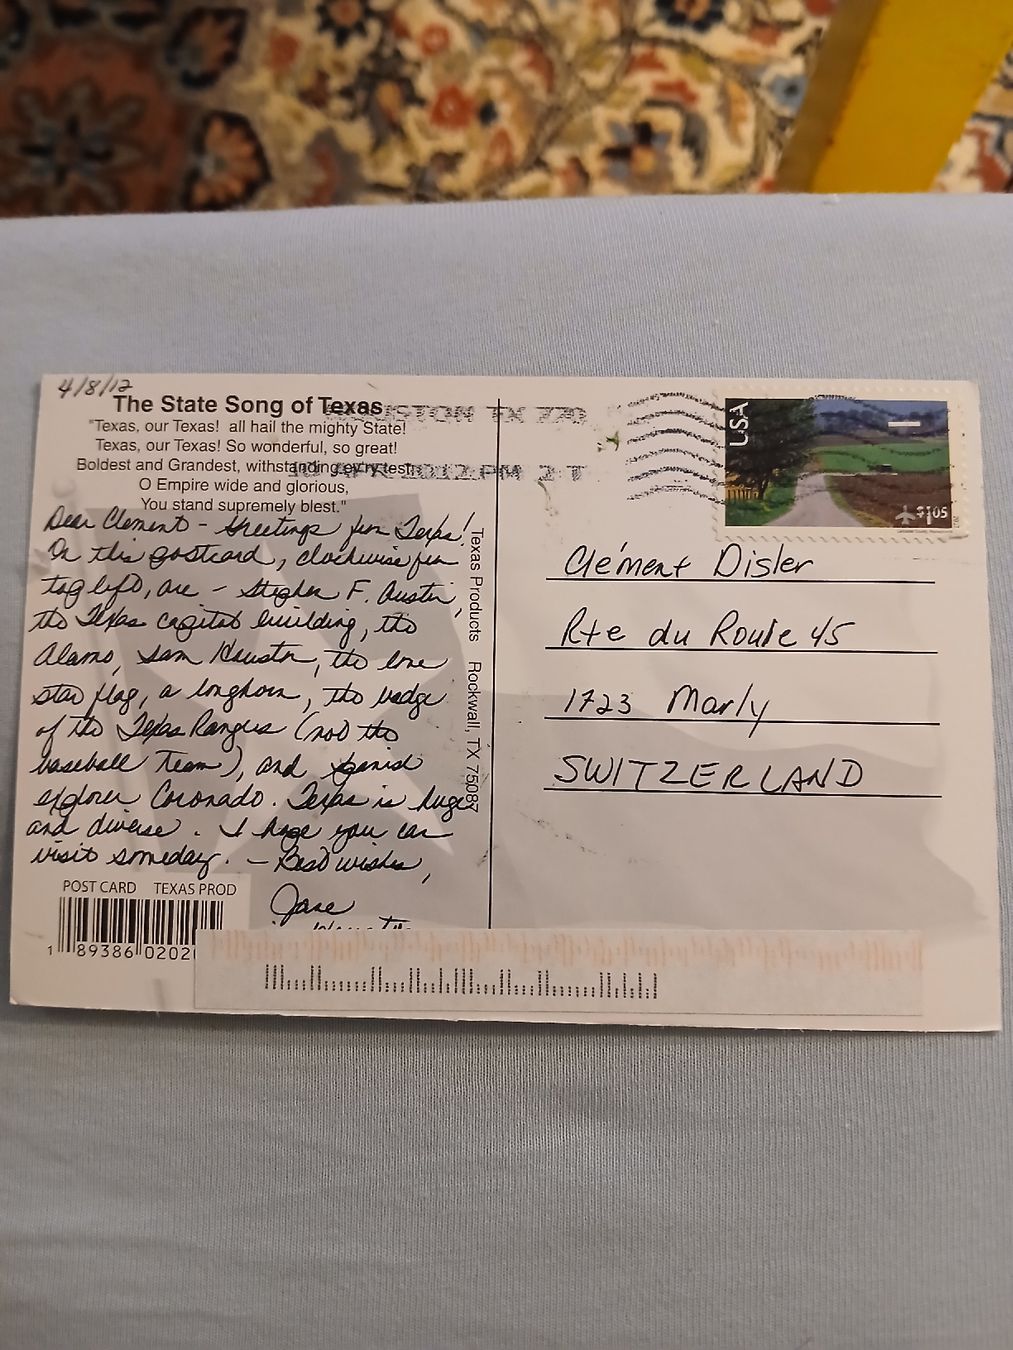 4/8/12
The State Song of Texas
"Texas, our Texas! all hail the mighty State!
Texas, our Texas! So wonderful, so great!
Boldest and Grandest, withstanding ev'ry test
O Empire wide and glorious,
You stand supremely blest."
Dear Clement - Greetings from Texas!
On this postcard, clockwise from
top left, are - Stephen F. Austin,
the Texas capitol building, the
Alamo, Sam Houston, the lone
star flag, a longhorn, the badge
of the Texas Rangers (not the
baseball team), and Spanish
explorer Coronado. Texas is huge
and diverse. I hope you can
visit someday. - Best wishes,
Jane
POST CARD TEXAS PROD
1 89386 0202
Texas Products Rockwall, TX 75087
HOUSTON TX 770
10 APR 2012 PM 2 T
USA
$1.05
Clément Disler
Rte du Roule 45
1723 Marly
SWITZERLAND